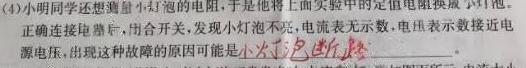 (4)小明同学还想测量小灯泡的电阻,于是他将上面实验中的定值电阻换成小灯泡。
正确连接电路后,闭合开关,发现小灯泡不亮,电流表无示数,电压表示数接近电
源电压,出现这种故障的原因可能是小灯泡断路。